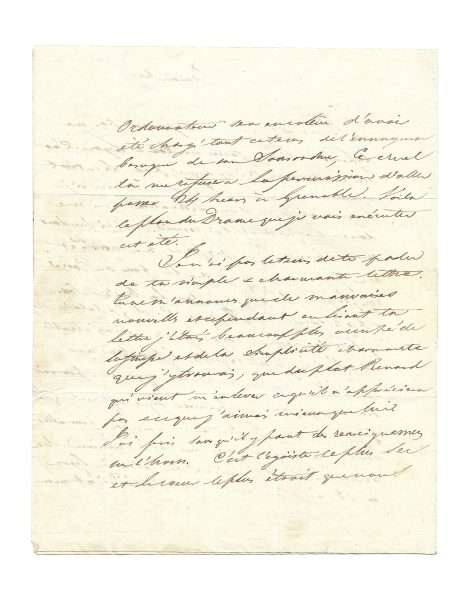 Ordonnateur d'avoir
été chargé tout ce tems de l'ennuyeuse
besogne de un
là me refusera la permission d'aller
passer 24 heures à Grenoble. Voilà
le plan du Drame que je vais exécuter
cet été.
Je n'ai pas le tems de te parler
de ta simple & charmante lettre.
tu ne m'annonces que de mauvaises
nouvelles et cependant en lisant ta
lettre j'étais beaucoup plus occupé de
la et de la simplicité charmante
que j'y trouvais, que du plat Renard
qui vient m'enlever ce qu'il n'appréciera
pas et ce que j'aimais mieux que lui
J'ai pris ce qu'il faut de renseignemens
sur l'h. C'est l'égoïste le plus sec
et le cœur le plus étroit que